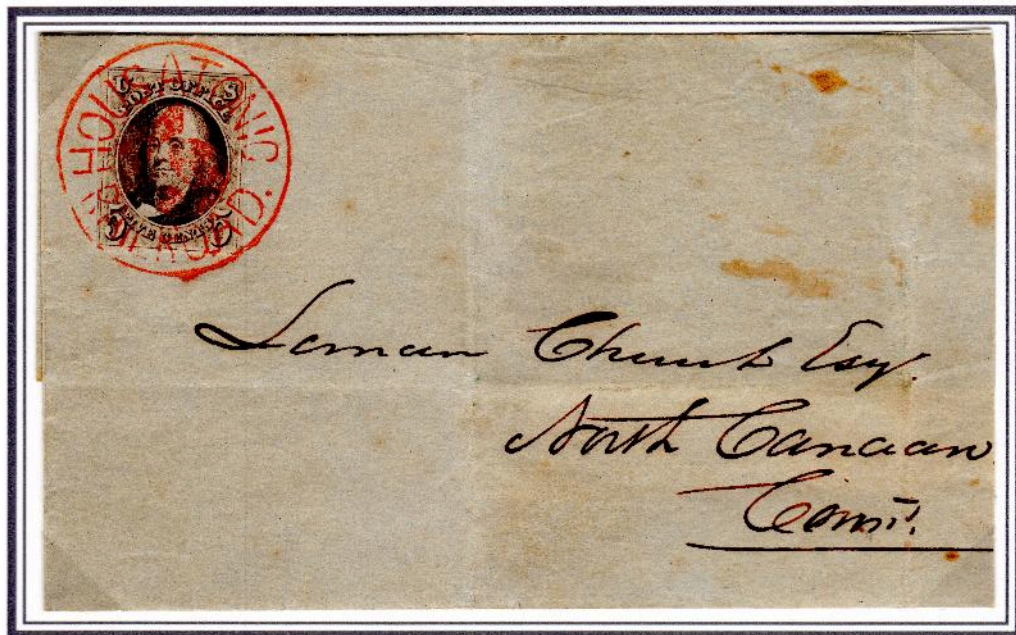 HOUSATONIC RAILROAD.
U S
POST OFFICE
FIVE CENTS
5 5
Leman Church Esq.
North Canaan
Conn.